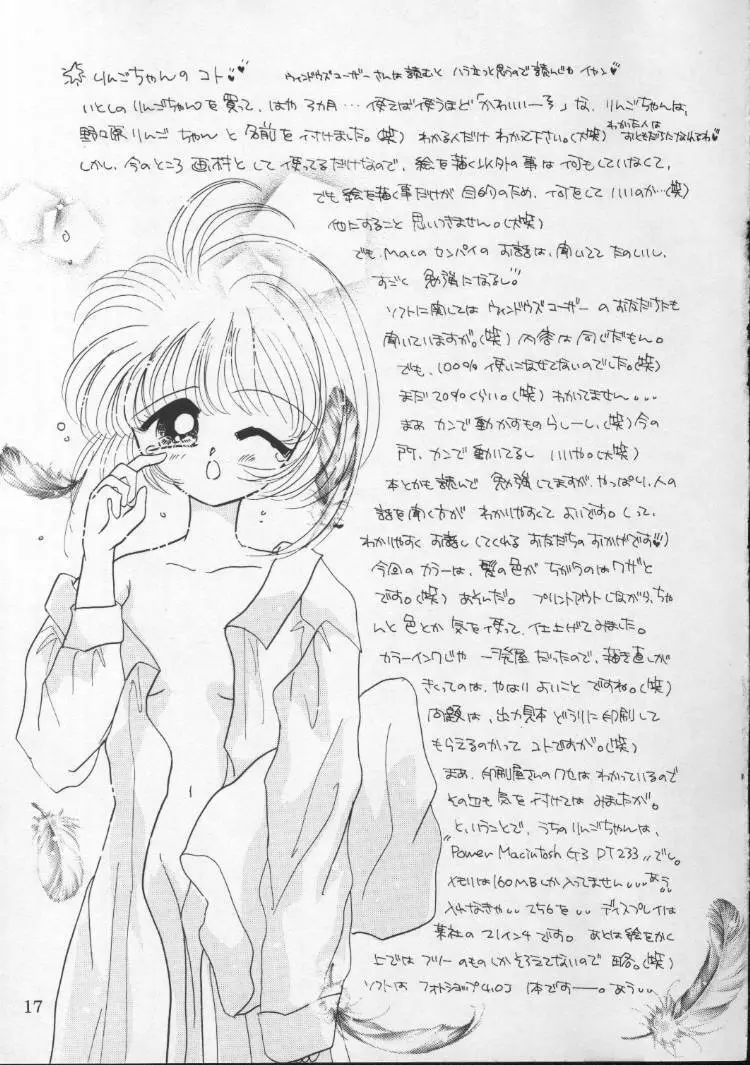 りんごちゃんのコト
ウィンドウズユーザーさんは読むとハラ立つと思うので読んじゃイヤン
いとしのりんごちゃんを買って、はや3カ月…使えば使うほど「かわいいーっ」な、りんごちゃんは、
野々原りんごちゃんと名前を付けました。(笑)わかる人だけわかて下さい。(大笑)わかった人はおともだちになれてね
しかし、今のところ画材として使ってるだけなので、絵を描く以外の事は何もしていなくて、
でも絵を描く事だけが目的のため、何をしていいのか…(笑)
他にすること思いつきません。(大笑)
でも、Macのセンパイのお話は、聞いててたのしいし、
すごく勉強になるし。
ソフトに関してはウィンドウズユーザーのお友だちにも
聞いていますが。(笑)内容は同じだもん。
でも、100%使いこなせてないのでした。(笑)
まだ20%くらい。(笑)わかてません…
まあカンで動かすものらしーし、(笑)今の
所、カンで動いてるしいいや。(大笑)
本とかも読んで勉強してますが、やっぱり、人の
話を聞く方がわかりやすくてよいです。(って、
わかりやすくお話ししてくれるお友だちのおかげです)
今回のカラーは、髪の色がちがうのはワザと
です。(笑)あそんだ。プリントアウトしながら、ちゃ
んと色とか気を使って、仕上げてみました。
カラーインクじゃ一発屋だったので、描き直しが
きくってのは、やはりよいことですね。(笑)
問題は、出力見本どうりに印刷して
もらえるのかってコトですが。(笑)
まあ、印刷屋さんのクセはわかっているので
その辺も気を付けてはみましたが。
と、いうことで、うちのりんごちゃんは、
"Power Macintosh G3 DT233"でし。
メモリは160MBしか入ってません…あう。
入れなきゃ…256を…ディスプレイは
某社の21インチです。あとは絵をかく
上ではフツーのものしかそろえてないので略。(笑)
ソフトはフォトショップ4.0J 1本ですーー。あう…
17